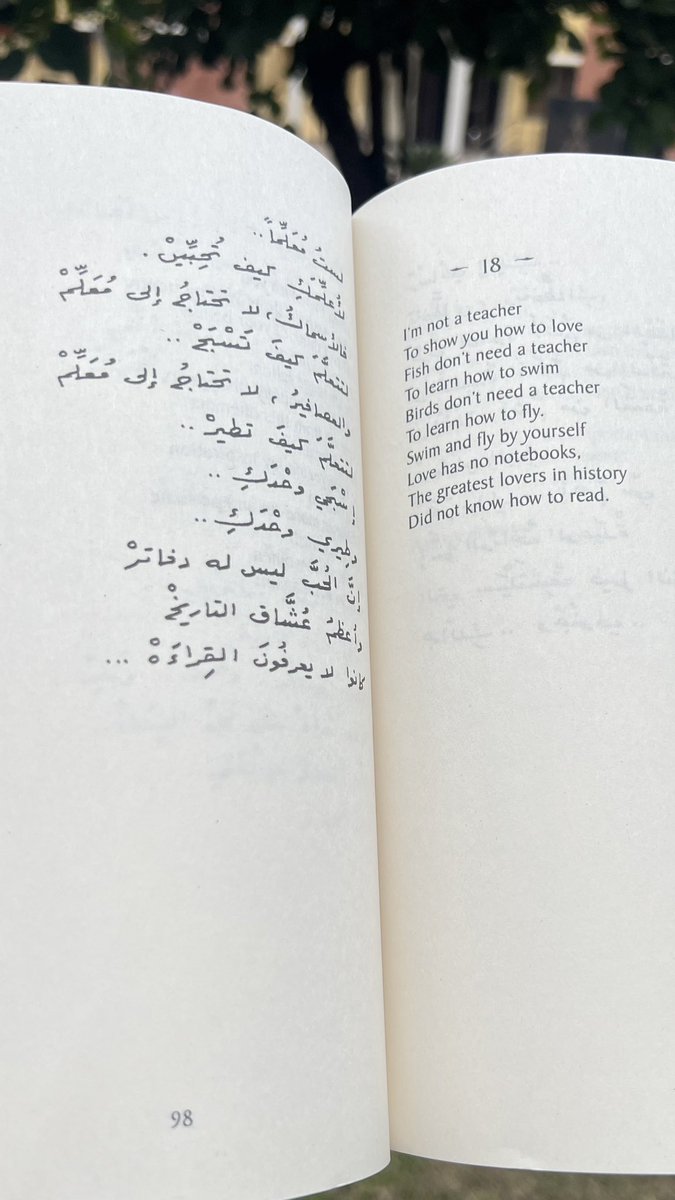 لستُ مُعَلِّماً..
لأُعلِّمَكِ كيفَ تُحِبِّينْ.
فالأسماكُ، لا تحتاجُ إلى مُعَلِّمْ
لتتعلَّمَ كيفَ تَسْبَحْ..
والعصافيرُ، لا تحتاجُ إلى مُعَلِّمْ
لتتعلَّمَ كيفَ تطيرْ..
إسْبَحي وحْدَكِ..
وطِيري وحْدَكِ..
إنَّ الحُبَّ ليس له دفاترْ
وأعظمُ عُشَّاق التاريخْ
كانوا لا يعرفُونَ القِراءَهْ...
98
- 18 -
I'm not a teacher
To show you how to love
Fish don't need a teacher
To learn how to swim
Birds don't need a teacher
To learn how to fly.
Swim and fly by yourself
Love has no notebooks,
The greatest lovers in history
Did not know how to read.